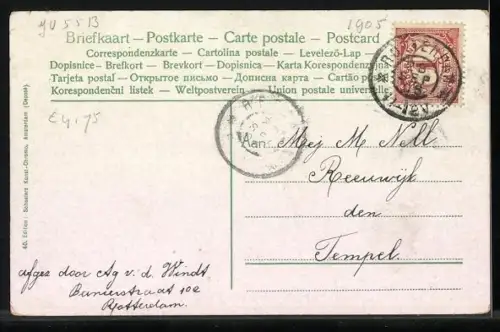 JU 5513
1905
Briefkaart – Postkarte – Carte postale – Postcard
Correspondenzkarte – Cartolina postale – Levelező-Lap –
Dopisnice – Brefkort – Brevkort – Dopisnica – Karta Korespondenzi
Tarjeta postal – Открытое письмо – Дописна карта – Cartão po
Korespondenční listek – Weltpostverein – Union postale universelle
€4,75
Aan
Meij M Nell
Reeuwijk
den
Tempel.
afgez door Ag v. d. Windt
Banierstraat 10e
Rotterdam.